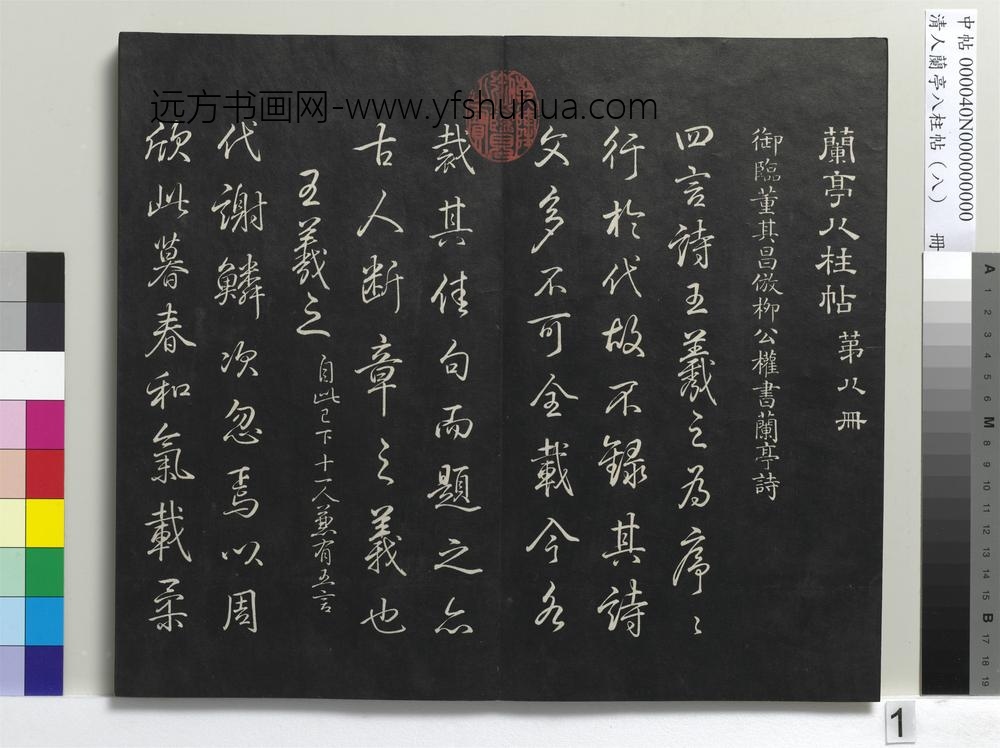 蘭亭八柱帖 第八冊
御臨董其昌倣柳公權書蘭亭詩
四言詩王羲之為序〻
行於代故不錄其詩
文多不可全載今各
裁其佳句而題之亦
古人断章之義也
王羲之 自此已下十一人兼有五言
代謝鱗次忽焉以周
欣此暮春和氣載柔
远方书画网-www.yfshuhua.com
中帖 000040N000000000
清人蘭亭八柱帖(八) 冊
A 1 2 3 4 5 6 M 8 9 10 11 12 13 14 15 B 17 18 19
1